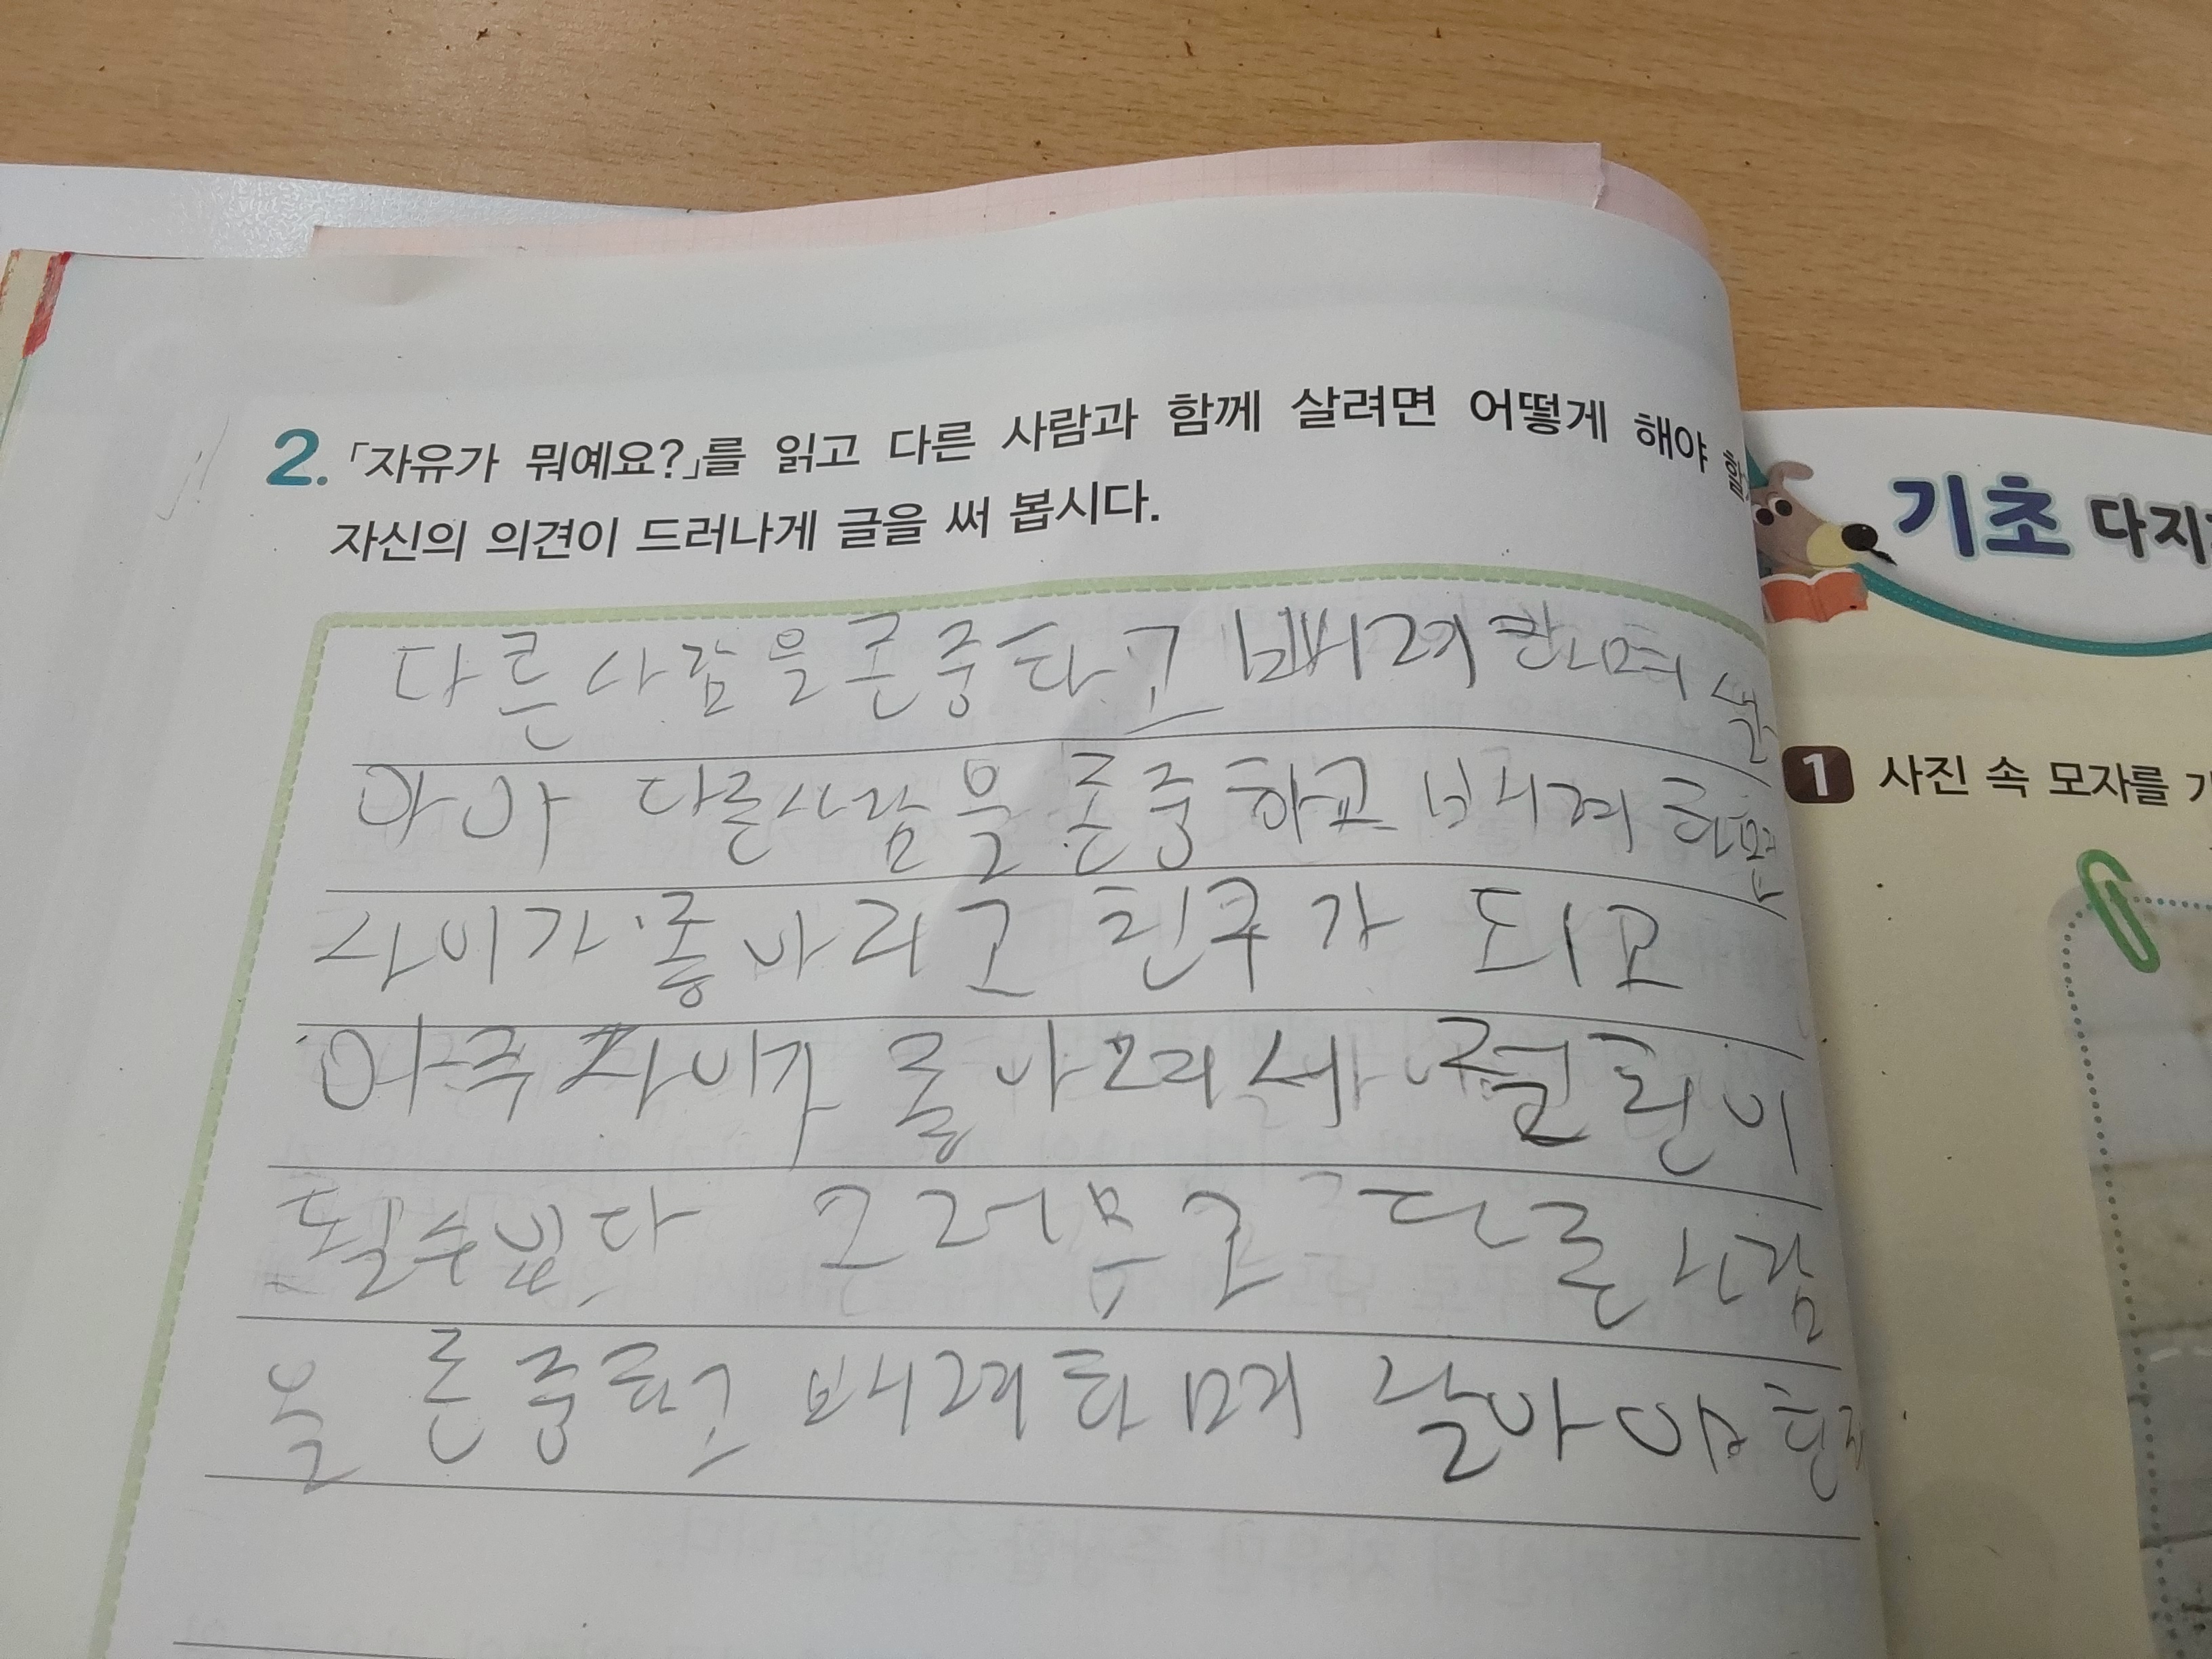 2. 「자유가 뭐예요?」를 읽고 다른 사람과 함께 살려면 어떻게 해야 할
자신의 의견이 드러나게 글을 써 봅시다.
다른사람을존중하고 배려하며 살
아야 다른사람을 존중하고 배려하면
사이가 좋아지고 친구가 되고
아주 사이가 좋아 친이
될수있다 그러므로 다른사람
을 존중하고 배려하며 살아야한
기초 다지
1 사진 속 모자를